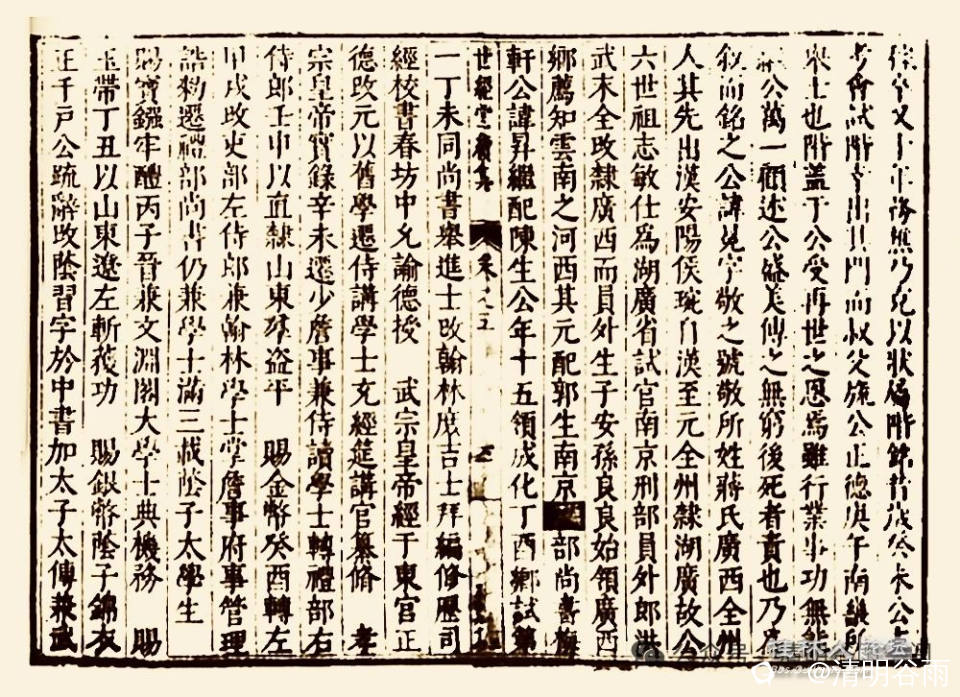 又十年海樵乃克以狀屬階銘昔歲癸未公主
考會試階幸出其門而叔父旒公正德庚午南畿所
舉士也階蓋于公受再世之恩焉雖行業事功無能
公萬一顧述公盛美傳之無窮後死者責也乃為
敘而銘之公諱冕字敬之號敬所姓蔣氏廣西全州
人其先出漢安陽侯琬自漢至元全州隸湖廣故公
六世祖志敏仕為湖廣省試官南京刑部員外郎洪
武末全改隸廣西而員外生子安孫良良始領廣西
鄉薦知雲南之河西其元配郭生南京部尚書梅
軒公諱昇繼配陳生公年十五領成化丁酉鄉試第
世經堂續集 卷之五
一丁未同尚書舉進士改翰林庶吉士拜編修歷司
經校書春坊中允諭德授 武宗皇帝經于東宮正
德改元以舊學遷侍講學士充經筵講官纂修 孝
宗皇帝實錄辛未遷少詹事兼侍讀學士轉禮部右
侍郎壬申以直隸山東羣盜平 賜金幣癸酉轉左
甲戌改吏部左侍郎兼翰林學士掌詹事府事管理
誥勅遷禮部尚書仍兼學士滿三載蔭子太學生
賜寶鏹牢醴丙子晉兼文淵閣大學士典機務 賜
玉帶丁丑以山東遼左斬獲功 賜銀幣蔭子錦衣
正千戶公疏辭改蔭習字於中書加太子太傅兼武
@清明谷雨